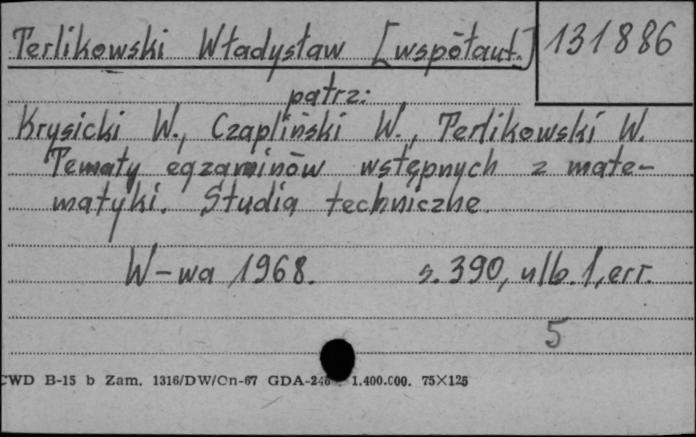 Terlikowski Władysław [współaut.] 131886
patrz:
Krysicki W., Czapliński W., Terlikowski W.
Tematy egzaminów wstępnych z mate-
matyki. Studia techniczne.
W-wa 1968. s. 390, ulb. 1, err.
5
CWD B-15 b Zam. 1316/DW/On-67 GDA-246 1.400.000. 75×125